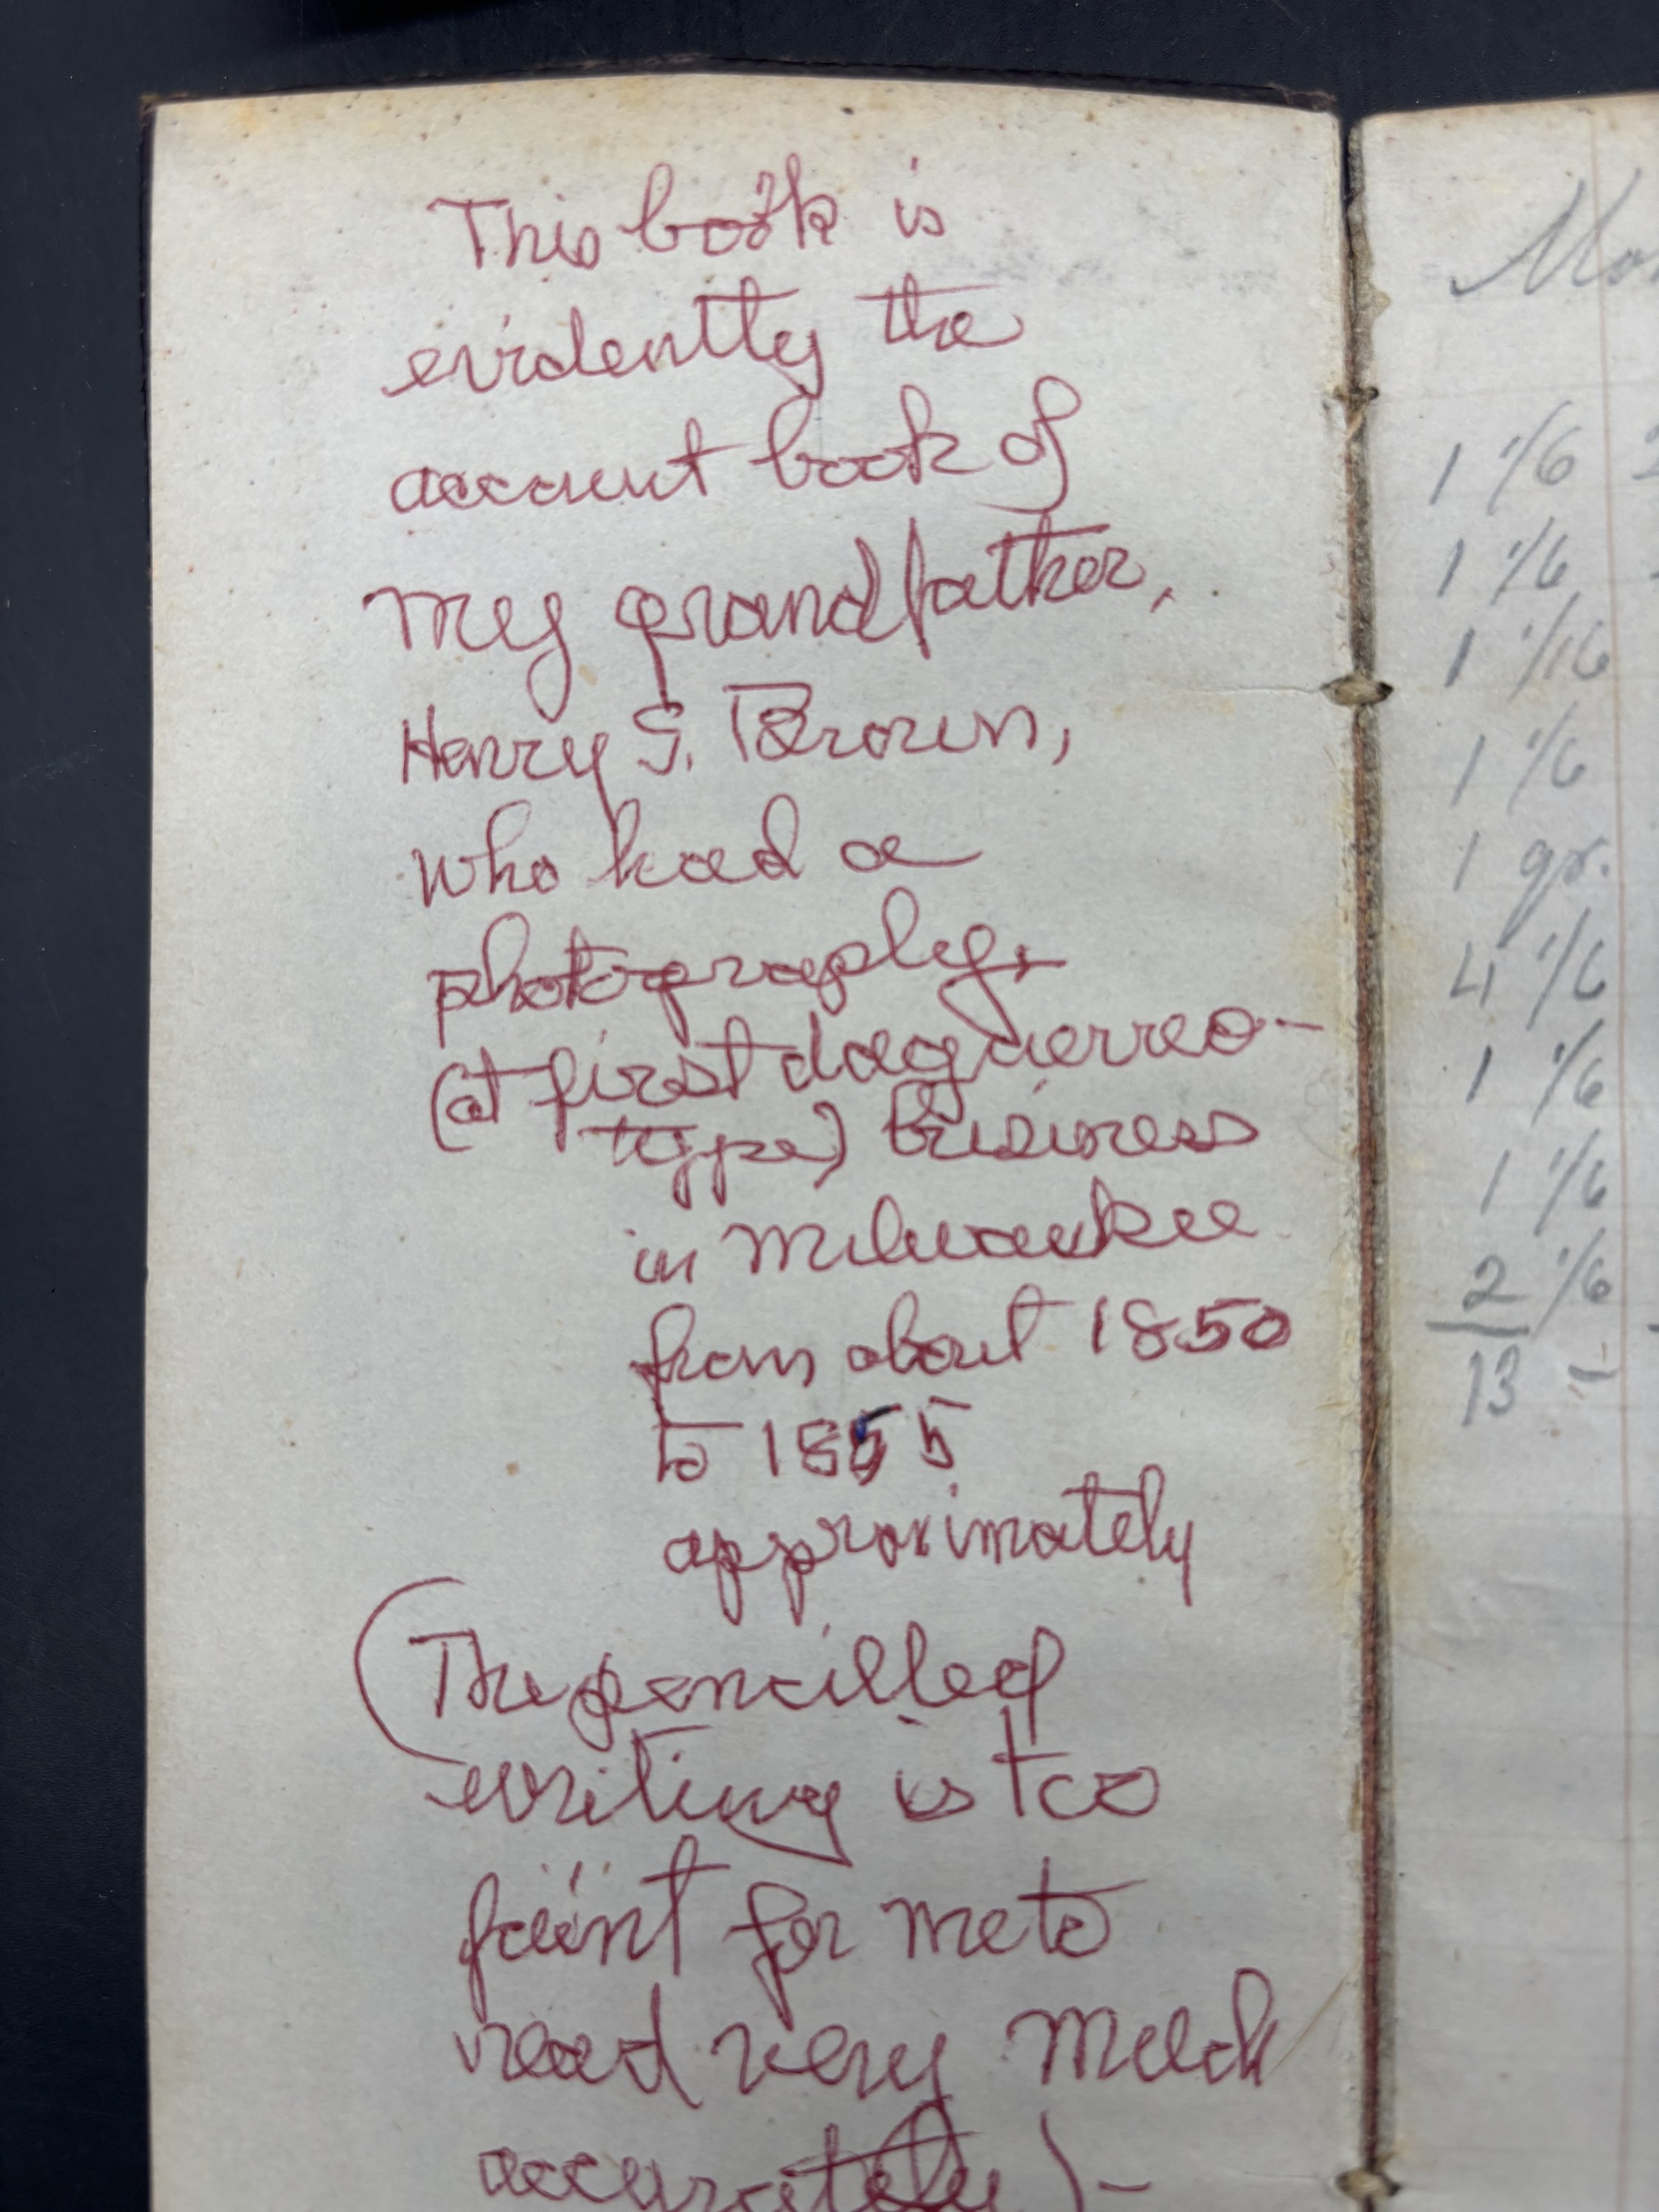 This book is
evidently the
account book of
my grandfather,
Henry S. Brown,
who had a
photography,
(at first daguerreo-
type) business
in Milwaukee
from about 1850
to 1855
approximately
(The pencilled
writing is too
faint for me to
read very much
accurately)-
1 1/6
1 1/6
1 1/16
1 1/6
1 gr.
4 1/6
1 1/6
1 1/6
2 1/6
13 -